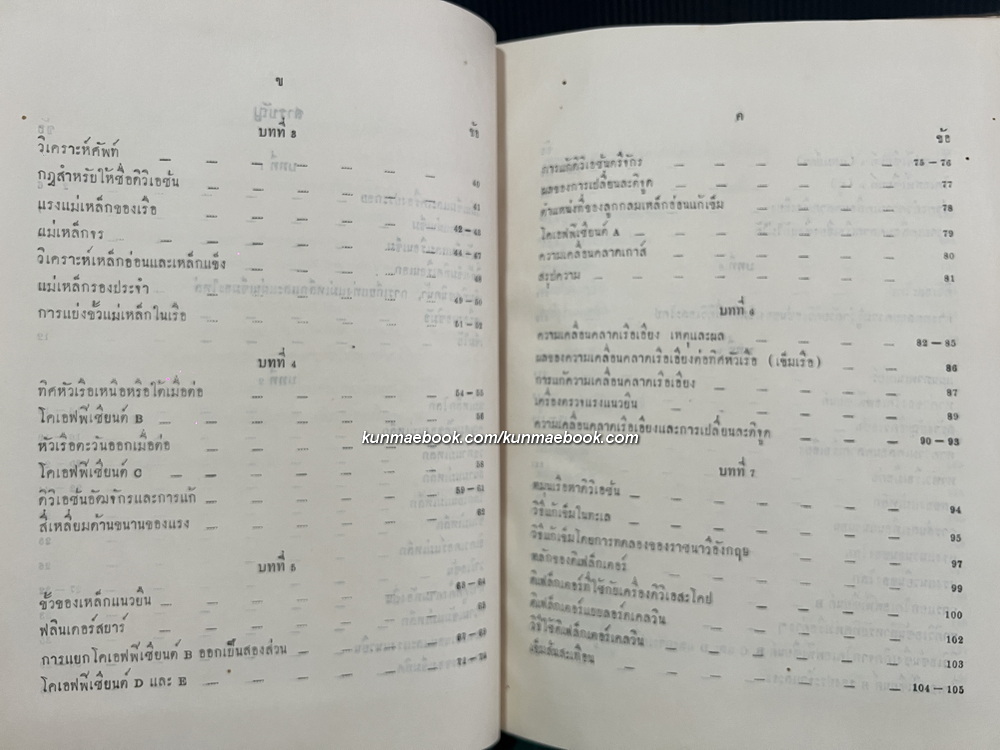 ข
บทที่ 3
ข้อ
วิเคราะห์ศัพท์
กฎสำหรับให้ชื่อดิวิเอชั่น 40
แรงแม่เหล็กของเรือ 41
แม่เหล็กจร 42—43
วิเคราะห์เหล็กอ่อนและเหล็กแข็ง
แม่เหล็กรองประจำ 48
การแย่งขั้วแม่เหล็กในเรือ
51—52
บทที่ 4
ทิศหัวเรือเหนือหรือใต้เมื่อต่อ 54—55
โคเอฟฟีเซียนต์ B 56
หัวเรือตะวันออกเมื่อต่อ
โคเอฟฟีเซียนต์ C 58
ดิวิเอชั่นอัฒจักรและการแก้
สี่เหลี่ยมด้านขนานของแรง 62
บทที่ 5
ขั้วของเหล็กแนวยืน
ฟลินเดอร์สบาร์
การแยกโคเอฟฟีเซียนต์ B ออกเป็นสองส่วน
โคเอฟฟีเซียนต์ D และ E
ค
ข้อ
การแก้ดิวิเอชั่นตรีจักร 75—76
ผลของการเปลี่ยนละติจูด 77
ตำแหน่งที่ของลูกกลมเหล็กอ่อนแก้เข็ม 78
โคเอฟฟีเซียนต์ A 79
ความเคลื่อนคลาดเกาส์ 80
สรุปความ 81
บทที่ 6
ความเคลื่อนคลาดเรือเอียง เหตุและผล 82—85
ผลของความเคลื่อนคลาดเรือเอียงต่อทิศหัวเรือ (เข็มเรือ) 86
การแก้ความเคลื่อนคลาดเรือเอียง 87
เครื่องตรวจแรงแนวยืน 89
ความเคลื่อนคลาดเรือเอียงและการเปลี่ยนละติจูด 90—93
kunmaebook.com/kunmaebook.com
บทที่ 7
หมุนเรือหาดิวิเอชั่น 94
วิธีแก้เข็มในทะเล 95
วิธีแก้เข็มโดยการทดลองของราชนาวีอังกฤษ 97
หลักของดีเฟล็กเตอร์ 99
ดีเฟล็กเตอร์ที่ใช้กับเครื่องดิวิเอสะโคป 100
ดีเฟล็กเตอร์แบบลอร์ดเคลวิน 102
วิธีใช้ดีเฟล็กเตอร์เคลวิน 103
เข็มสั่นสะเทือน 104—105